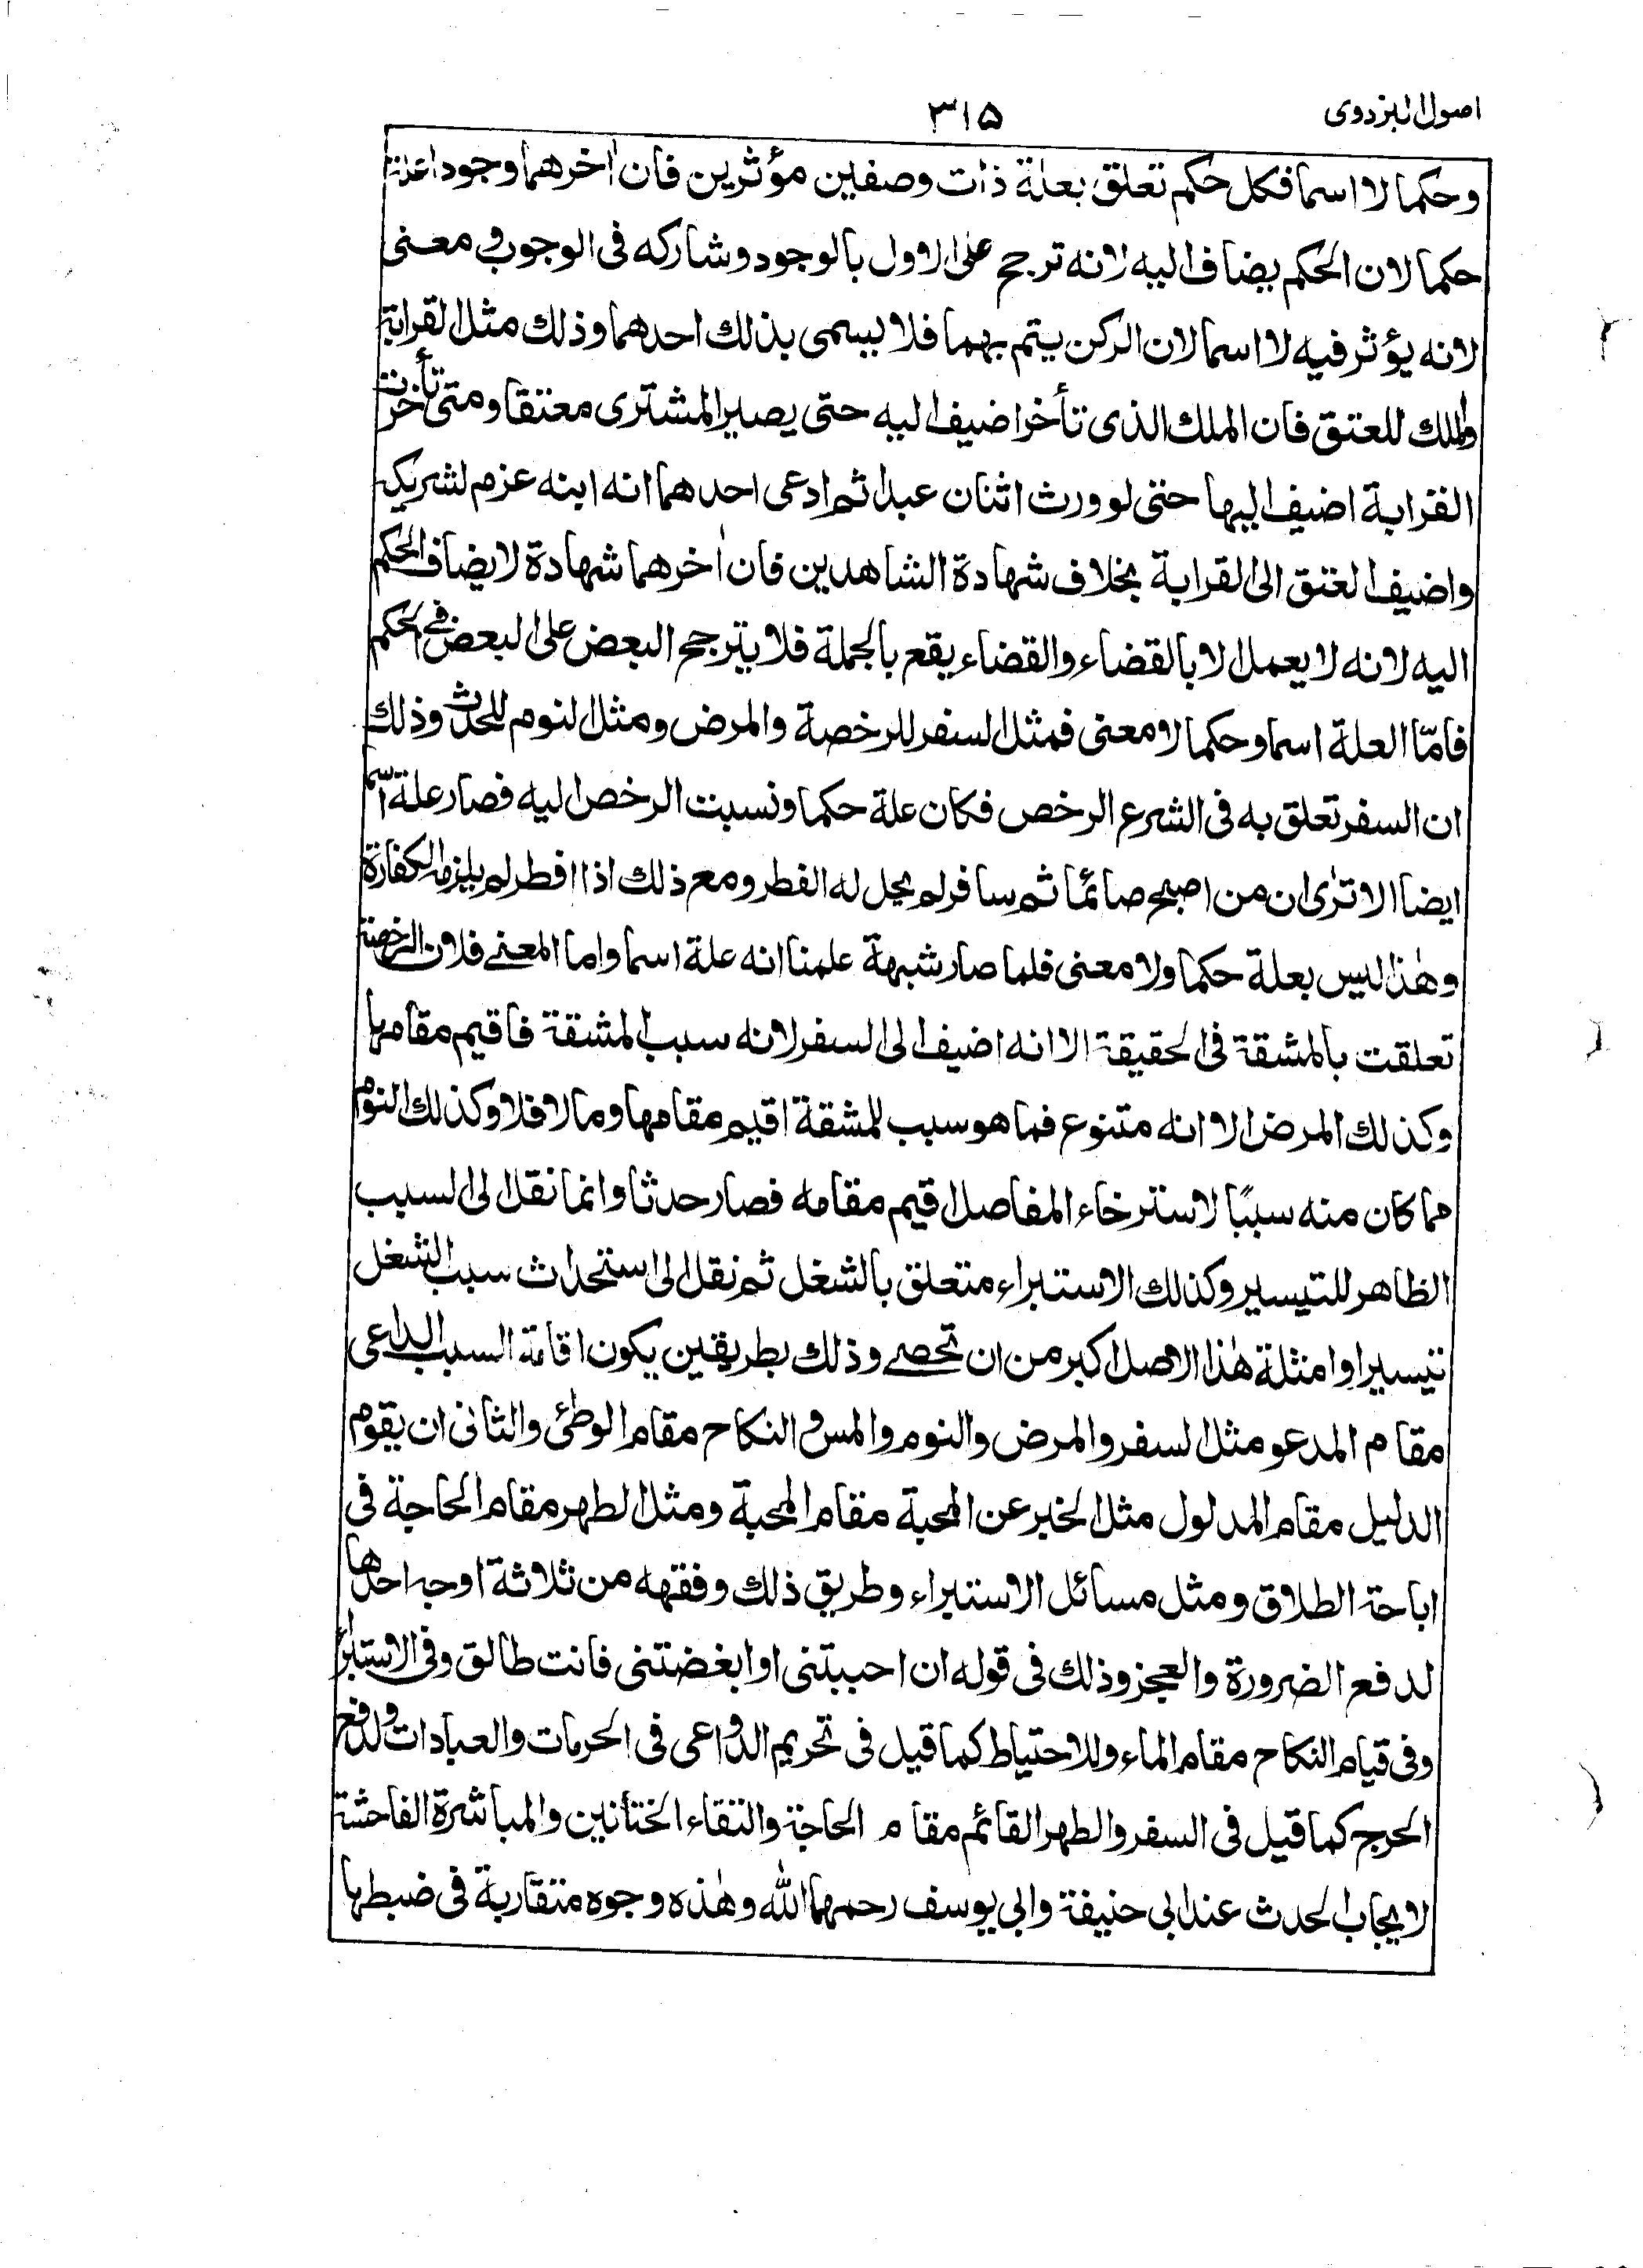 اصول البزدوی
۳۱۵
وحكما لا اسما فكل حكم تعلق بعلة ذات وصفين مؤثرين فان اٰخرهما وجودا علة
حكما لان الحكم يضاف اليه لانه ترجح على الاول بالوجود وشاركه فى الوجوب و معنى
لانه يؤثر فيه لا اسما لان الركن يتم بهما فلا يسمى بذلك احدهما وذلك مثل القرابة
والملك للعتق فان الملك الذى تأخر اضيف اليه حتى يصير المشترى معتقا ومتى تأخرت
القرابة اضيف اليها حتى لو ورث اثنان عبدا ثم ادعى احدهما انه ابنه غرم لشريكه
واضيف العتق الى القرابة بخلاف شهادة الشاهدين فان اٰخرهما شهادة لا يضاف الحكم
اليه لانه لا يعمل الا بالقضاء والقضاء يقع بالجملة فلا يترجح البعض على البعض فے الحكم
فامّا العلة اسما وحكما لا معنى فمثل السفر للرخصة والمرض ومثل النوم للحدث وذلك
ان السفر تعلق به فى الشرع الرخص فكان علة حكما ونسبت الرخص اليه فصار علة اسما
ايضا الا ترٰى ان من اصبح صائما ثم سافر لم يحل له الفطر ومع ذلك اذا افطر لم يلزمه الكفارة
وهٰذا ليس بعلة حكما ولا معنى فلما صار شبهة علمنا انه علة اسما واما المعنے فلان الرخصة
تعلقت بالمشقة فى الحقيقة الا انه اضيف الى السفر لانه سبب المشقة فاقيم مقامها
وكذلك المرض الا انه متنوع فما هو سبب للمشقة اقيم مقامها وما لا فلا وكذلك النوم
مما كان منه سببًا لاسترخاء المفاصل اقيم مقامه فصار حدثا وانما نقل الى السبب
الظاهر للتيسير وكذلك الاستبراء متعلق بالشغل ثم نقل الى استحداث سبب الشغل
تيسيرا وامثلة هٰذا الاصل اكبر من ان تحصے وذلك بطريقين يكون اقامة السبب الداعى
مقام المدعو مثل السفر والمرض والنوم والمس و النكاح مقام الوطئ والثانى ان يقوم
الدليل مقام المدلول مثل الخبر عن المحبة مقام المحبة ومثل الطهر مقام الحاجة فى
اباحة الطلاق ومثل مسائل الاستبراء وطريق ذلك وفقهه من ثلاثة اوجه احدها
لدفع الضرورة والعجز وذلك فى قوله ان احببتنى او ابغضتنى فانت طالق وفى الاستبراء
وفى قيام النكاح مقام الماء وللاحتياط كما قيل فى تحريم الدواعى فى الحرمات والعبادات ولدفع
الحرج كما قيل فى السفر والطهر القائم مقام الحاجة والتقاء الختانين والمباشرة الفاحشة
لايجاب الحدث عند ابى حنيفة وابى يوسف رحمهما الله وهٰذه وجوه متقاربة فى ضبطها